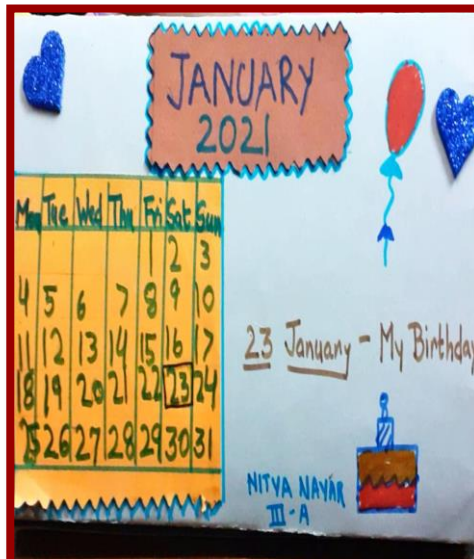 JANUARY
2021
Mon Tue Wed Thu Fri Sat Sun
1 2 3
4 5 6 7 8 9 10
11 12 13 14 15 16 17
18 19 20 21 22 23 24
25 26 27 28 29 30 31
23 January - My Birthday
NITYA NAYAR
III-A